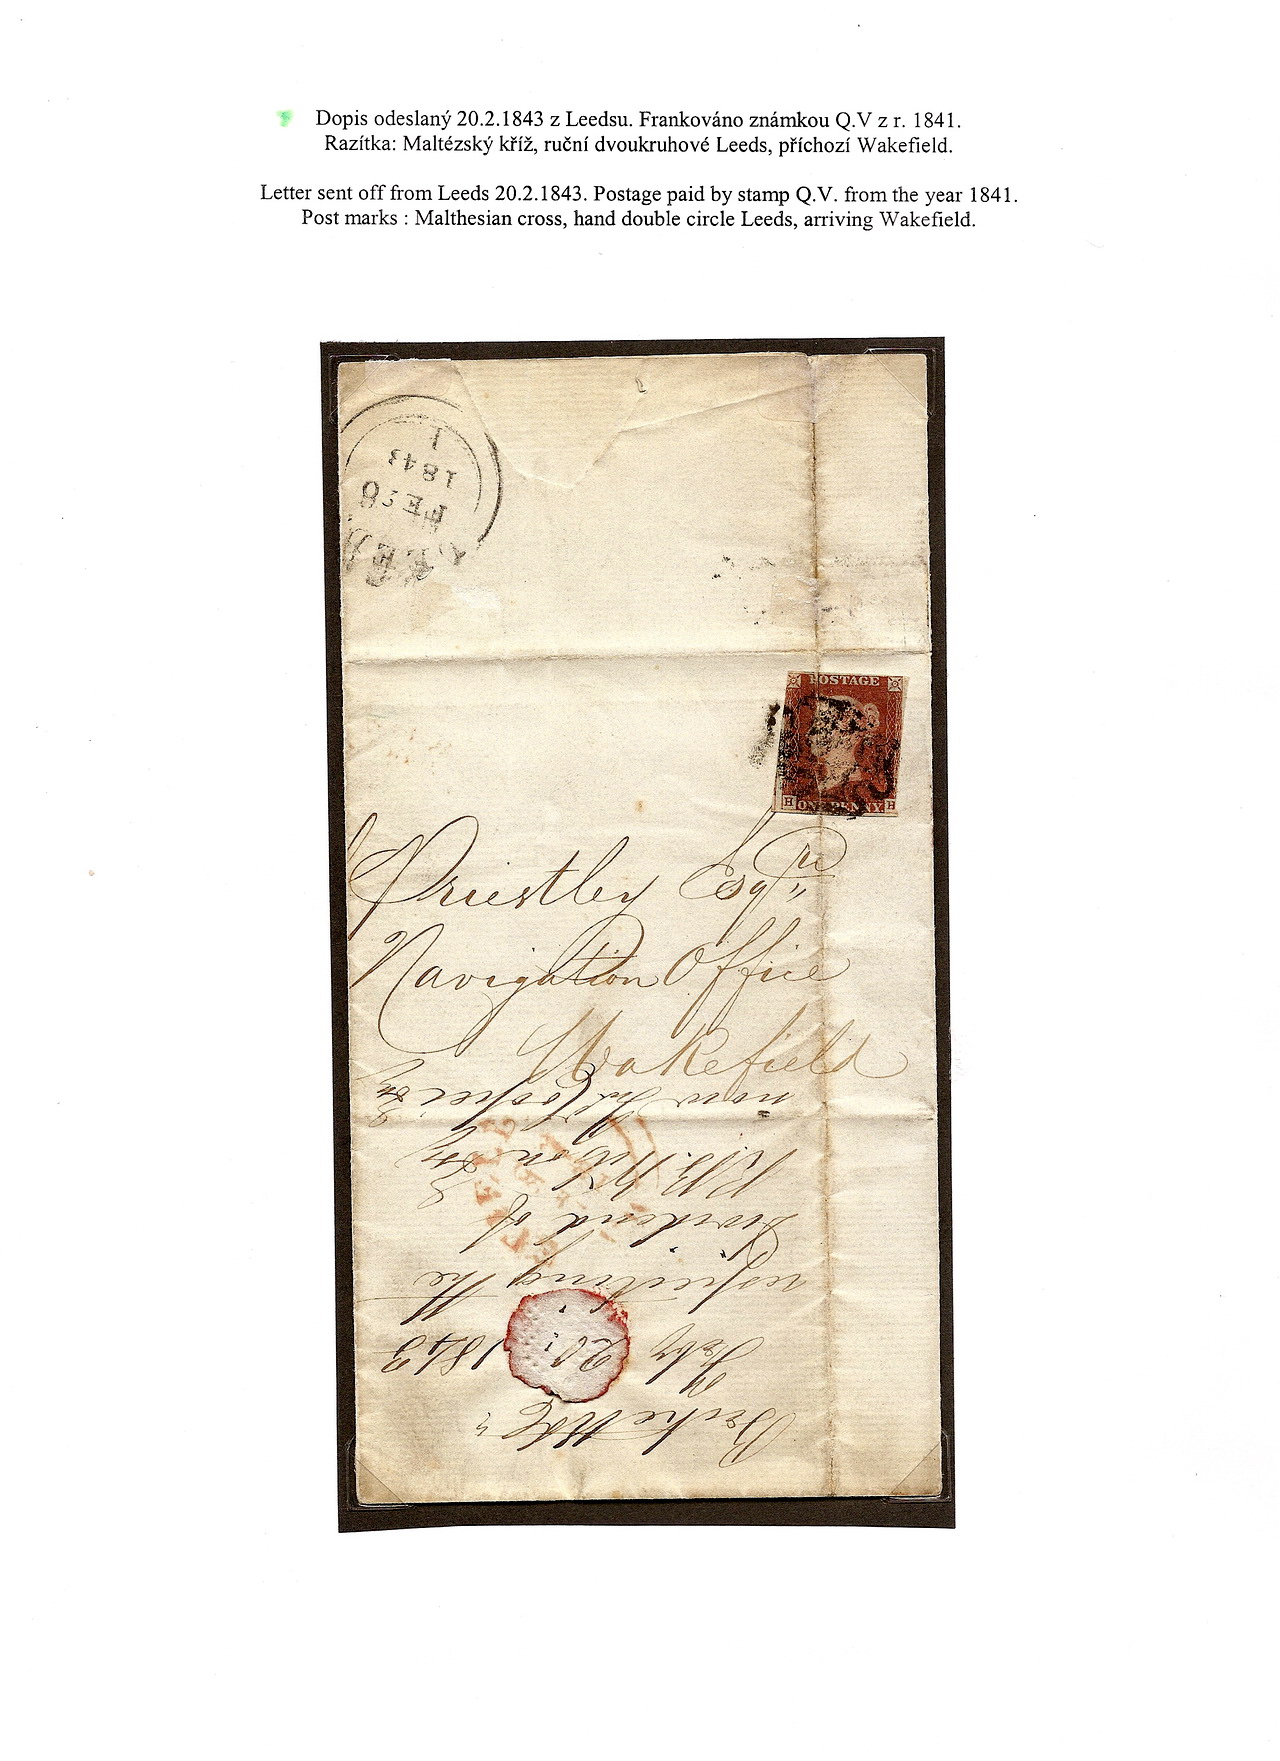 Dopis odeslaný 20.2.1843 z Leedsu. Frankováno známkou Q.V z r. 1841.
Razítka: Maltézský kříž, ruční dvoukruhové Leeds, příchozí Wakefield.
Letter sent off from Leeds 20.2.1843. Postage paid by stamp Q.V. from the year 1841.
Post marks : Malthesian cross, hand double circle Leeds, arriving Wakefield.
1
1843
POSTAGE
H ONE PENNY H
Priestley Esqre
Navigation Office
Wakefield
Feby 20: 1843
respecting the
Dividend of
now